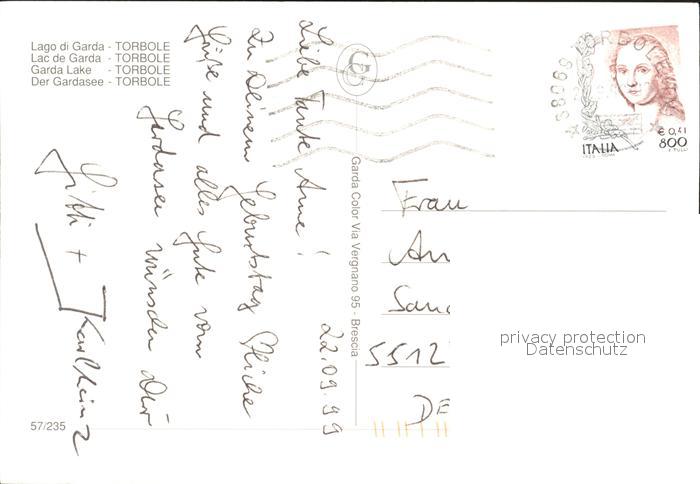 Lago di Garda - TORBOLE
Lac de Garda - TORBOLE
Garda Lake - TORBOLE
Der Gardasee - TORBOLE
22.09.99
Liebe Tante Anne!
Zu Deinem Geburtstag
Grüße und alles Gute vom
Gardasee wünschen Dir
Gitti + Karlheinz
57/235
Garda Color Via Vergnano 95 - Brescia
G
TORBOLE
38069
€ 0,41
800
ITALIA
Frau
An
San
5512
DE
privacy protection
Datenschutz